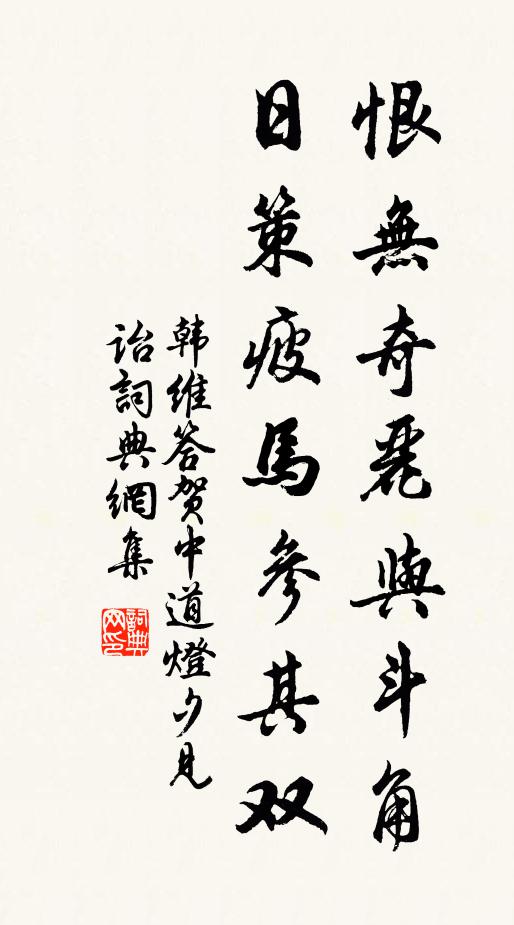 恨無奇麗與斗角
日策疲馬參其双
韩維答贺中道燈夕見
诒詞典網集
詞典网印